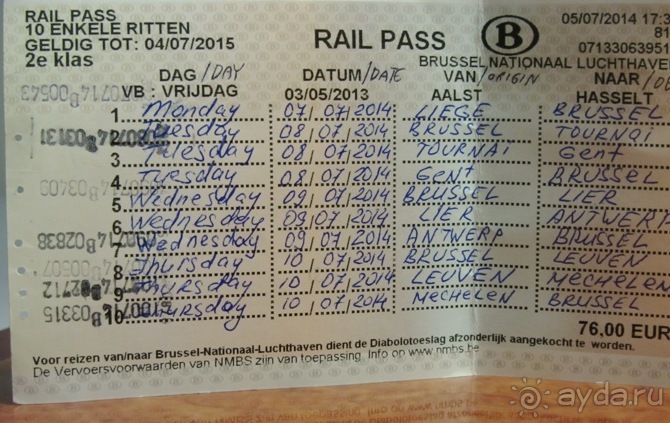 RAIL PASS
10 ENKELE RITTEN
GELDIG TOT: 04/07/2015
2e klas
RAIL PASS
B
05/07/2014 17:3
81
07133063951
BRUSSEL NATIONAAL LUCHTHAVEN
DAG /DAY DATUM /DATE VAN /ORIGIN NAAR
VB : VRIJDAG 03/05/2013 AALST HASSELT
1 Monday 07/07/2014 LIEGE BRUSSEL
2 Tuesday 08/07/2014 BRUSSEL TOURNAI
3 Tuesday 08/07/2014 TOURNAI Gent
4 Tuesday 08/07/2014 Gent BRUSSEL
5 Wednesday 09/07/2014 BRUSSEL LIER
6 Wednesday 09/07/2014 LIER ANTWERP
7 Wednesday 09/07/2014 ANTWERP BRUSSEL
8 Thursday 10/07/2014 BRUSSEL LEUVEN
9 Thursday 10/07/2014 LEUVEN Mechelen
10 Thursday 10/07/2014 Mechelen BRUSSEL
76.00 EUR
Voor reizen van/naar Brussel-Nationaal-Luchthaven dient de Diabolotoeslag afzonderlijk aangekocht te worden.
De Vervoersvoorwaarden van NMBS zijn van toepassing. Info op www.nmbs.be
ayda.ru